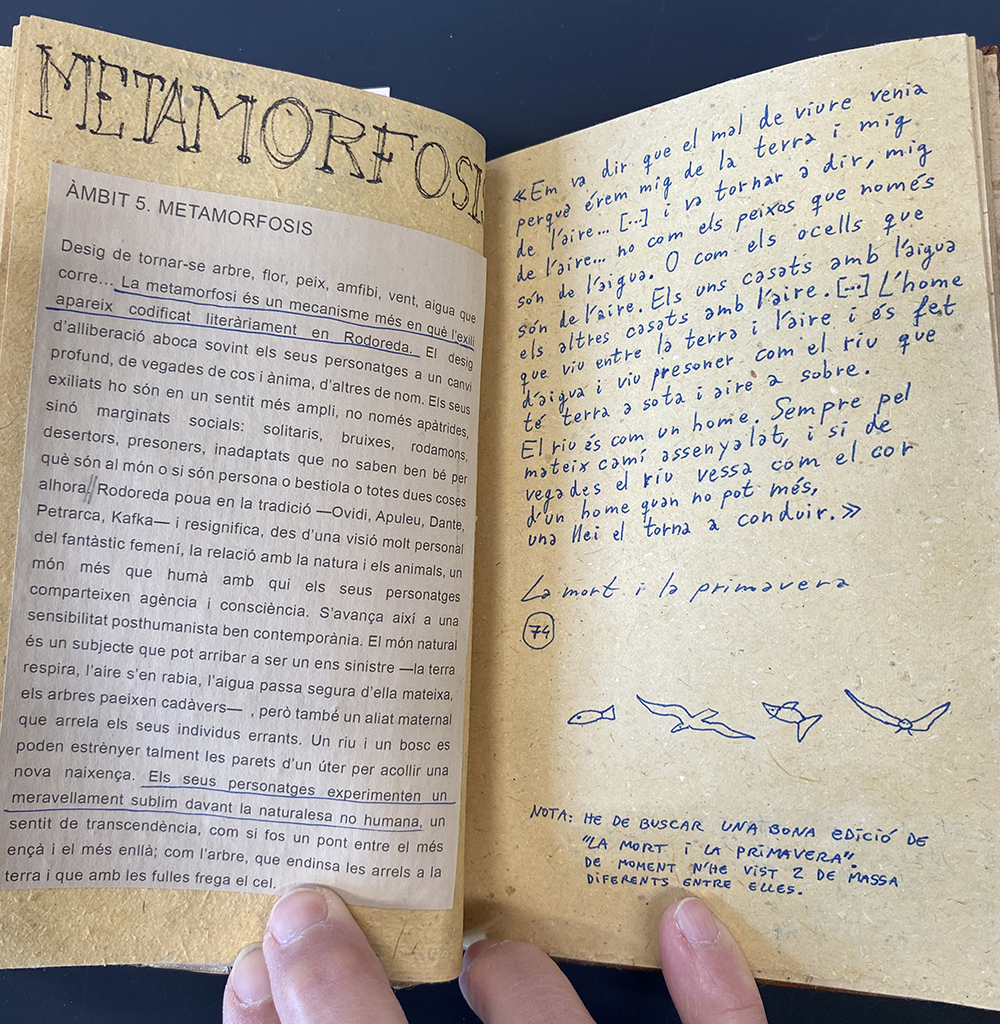 METAMORFOSIS
ÀMBIT 5. METAMORFOSIS
Desig de tornar-se arbre, flor, peix, amfibi, vent, aigua que
corre... La metamorfosi és un mecanisme més en què l'exili
apareix codificat literàriament en Rodoreda. El desig
d'alliberació aboca sovint els seus personatges a un canvi
profund, de vegades de cos i ànima, d'altres de nom. Els seus
exiliats ho són en un sentit més ampli, no només apàtrides,
sinó marginats socials: solitaris, bruixes, rodamons,
desertors, presoners, inadaptats que no saben ben bé per
què són al món o si són persona o bestiola o totes dues coses
alhora// Rodoreda poua en la tradició —Ovidi, Apuleu, Dante,
Petrarca, Kafka— i resignifica, des d'una visió molt personal
del fantàstic femení, la relació amb la natura i els animals, un
món més que humà amb qui els seus personatges
comparteixen agència i consciència. S'avança així a una
sensibilitat posthumanista ben contemporània. El món natural
és un subjecte que pot arribar a ser un ens sinistre —la terra
respira, l'aire s'en rabia, l'aigua passa segura d'ella mateixa,
els arbres paeixen cadàvers— , però també un aliat maternal
que arrela els seus individus errants. Un riu i un bosc es
poden estrènyer talment les parets d'un úter per acollir una
nova naixença. Els seus personatges experimenten un
meravellament sublim davant la naturalesa no humana, un
sentit de transcendència, com si fos un pont entre el més
ençà i el més enllà; com l'arbre, que endinsa les arrels a la
terra i que amb les fulles frega el cel.
«Em va dir que el mal de viure venia
perquè érem mig de la terra i mig
de l'aire... [...] i va tornar a dir, mig
de l'aire... no com els peixos que només
són de l'aigua. O com els ocells que
són de l'aire. Els uns casats amb l'aigua
els altres casats amb l'aire. [...] L'home
que viu entre la terra i l'aire i és fet
d'aigua i viu presoner com el riu que
té terra a sota i aire a sobre.
El riu és com un home. Sempre pel
mateix camí assenyalat, i si de
vegades el riu vessa com el cor
d'un home quan no pot més,
una llei el torna a conduir.»
La mort i la primavera
74
NOTA: HE DE BUSCAR UNA BONA EDICIÓ DE
"LA MORT I LA PRIMAVERA".
DE MOMENT N'HE VIST 2 DE MASSA
DIFERENTS ENTRE ELLES.